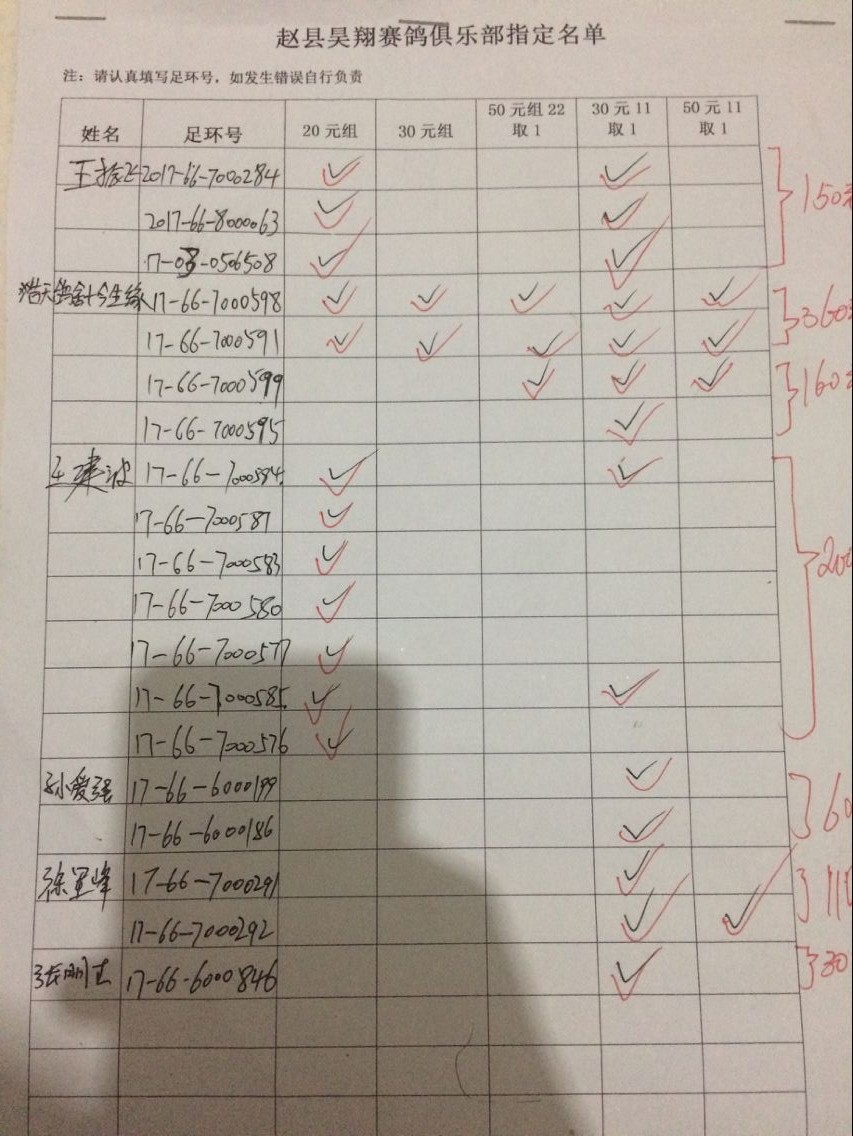 赵县昊翔赛鸽俱乐部指定名单
注：请认真填写足环号，如发生错误自行负责
姓名 足环号 20元组 30元组 50元组22取1 30元11取1 50元11取1
王振 2017-66-7000284 ✓ ✓
2017-66-8000063 ✓ ✓
17-03-0506508 ✓ ✓
150
浩天鸽舍+今生缘 17-66-7000598 ✓ ✓ ✓ ✓ ✓
17-66-7000591 ✓ ✓ ✓ ✓ ✓
360
17-66-7000599 ✓ ✓ ✓
17-66-7000595 ✓
160
王建波 17-66-7000584 ✓ ✓
17-66-7000587 ✓
17-66-7000583 ✓
17-66-7000580 ✓
17-66-7000577 ✓
17-66-7000585 ✓ ✓
17-66-7000576 ✓
200
孙爱强 17-66-6000199 ✓
17-66-6000186 ✓
60
徐军峰 17-66-7000291 ✓
17-66-7000292 ✓ ✓
110
张刚 17-66-6000846 ✓
30